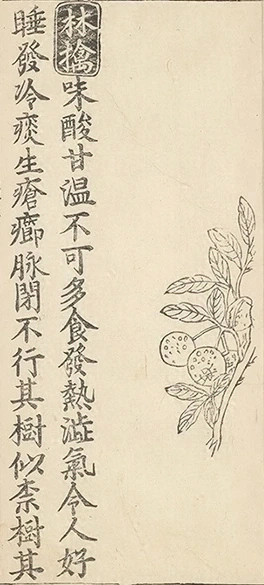 林檎味酸甘温不可多食發熱澁氣令人好
睡發冷痰生瘡癤脉閉不行其樹似柰樹其